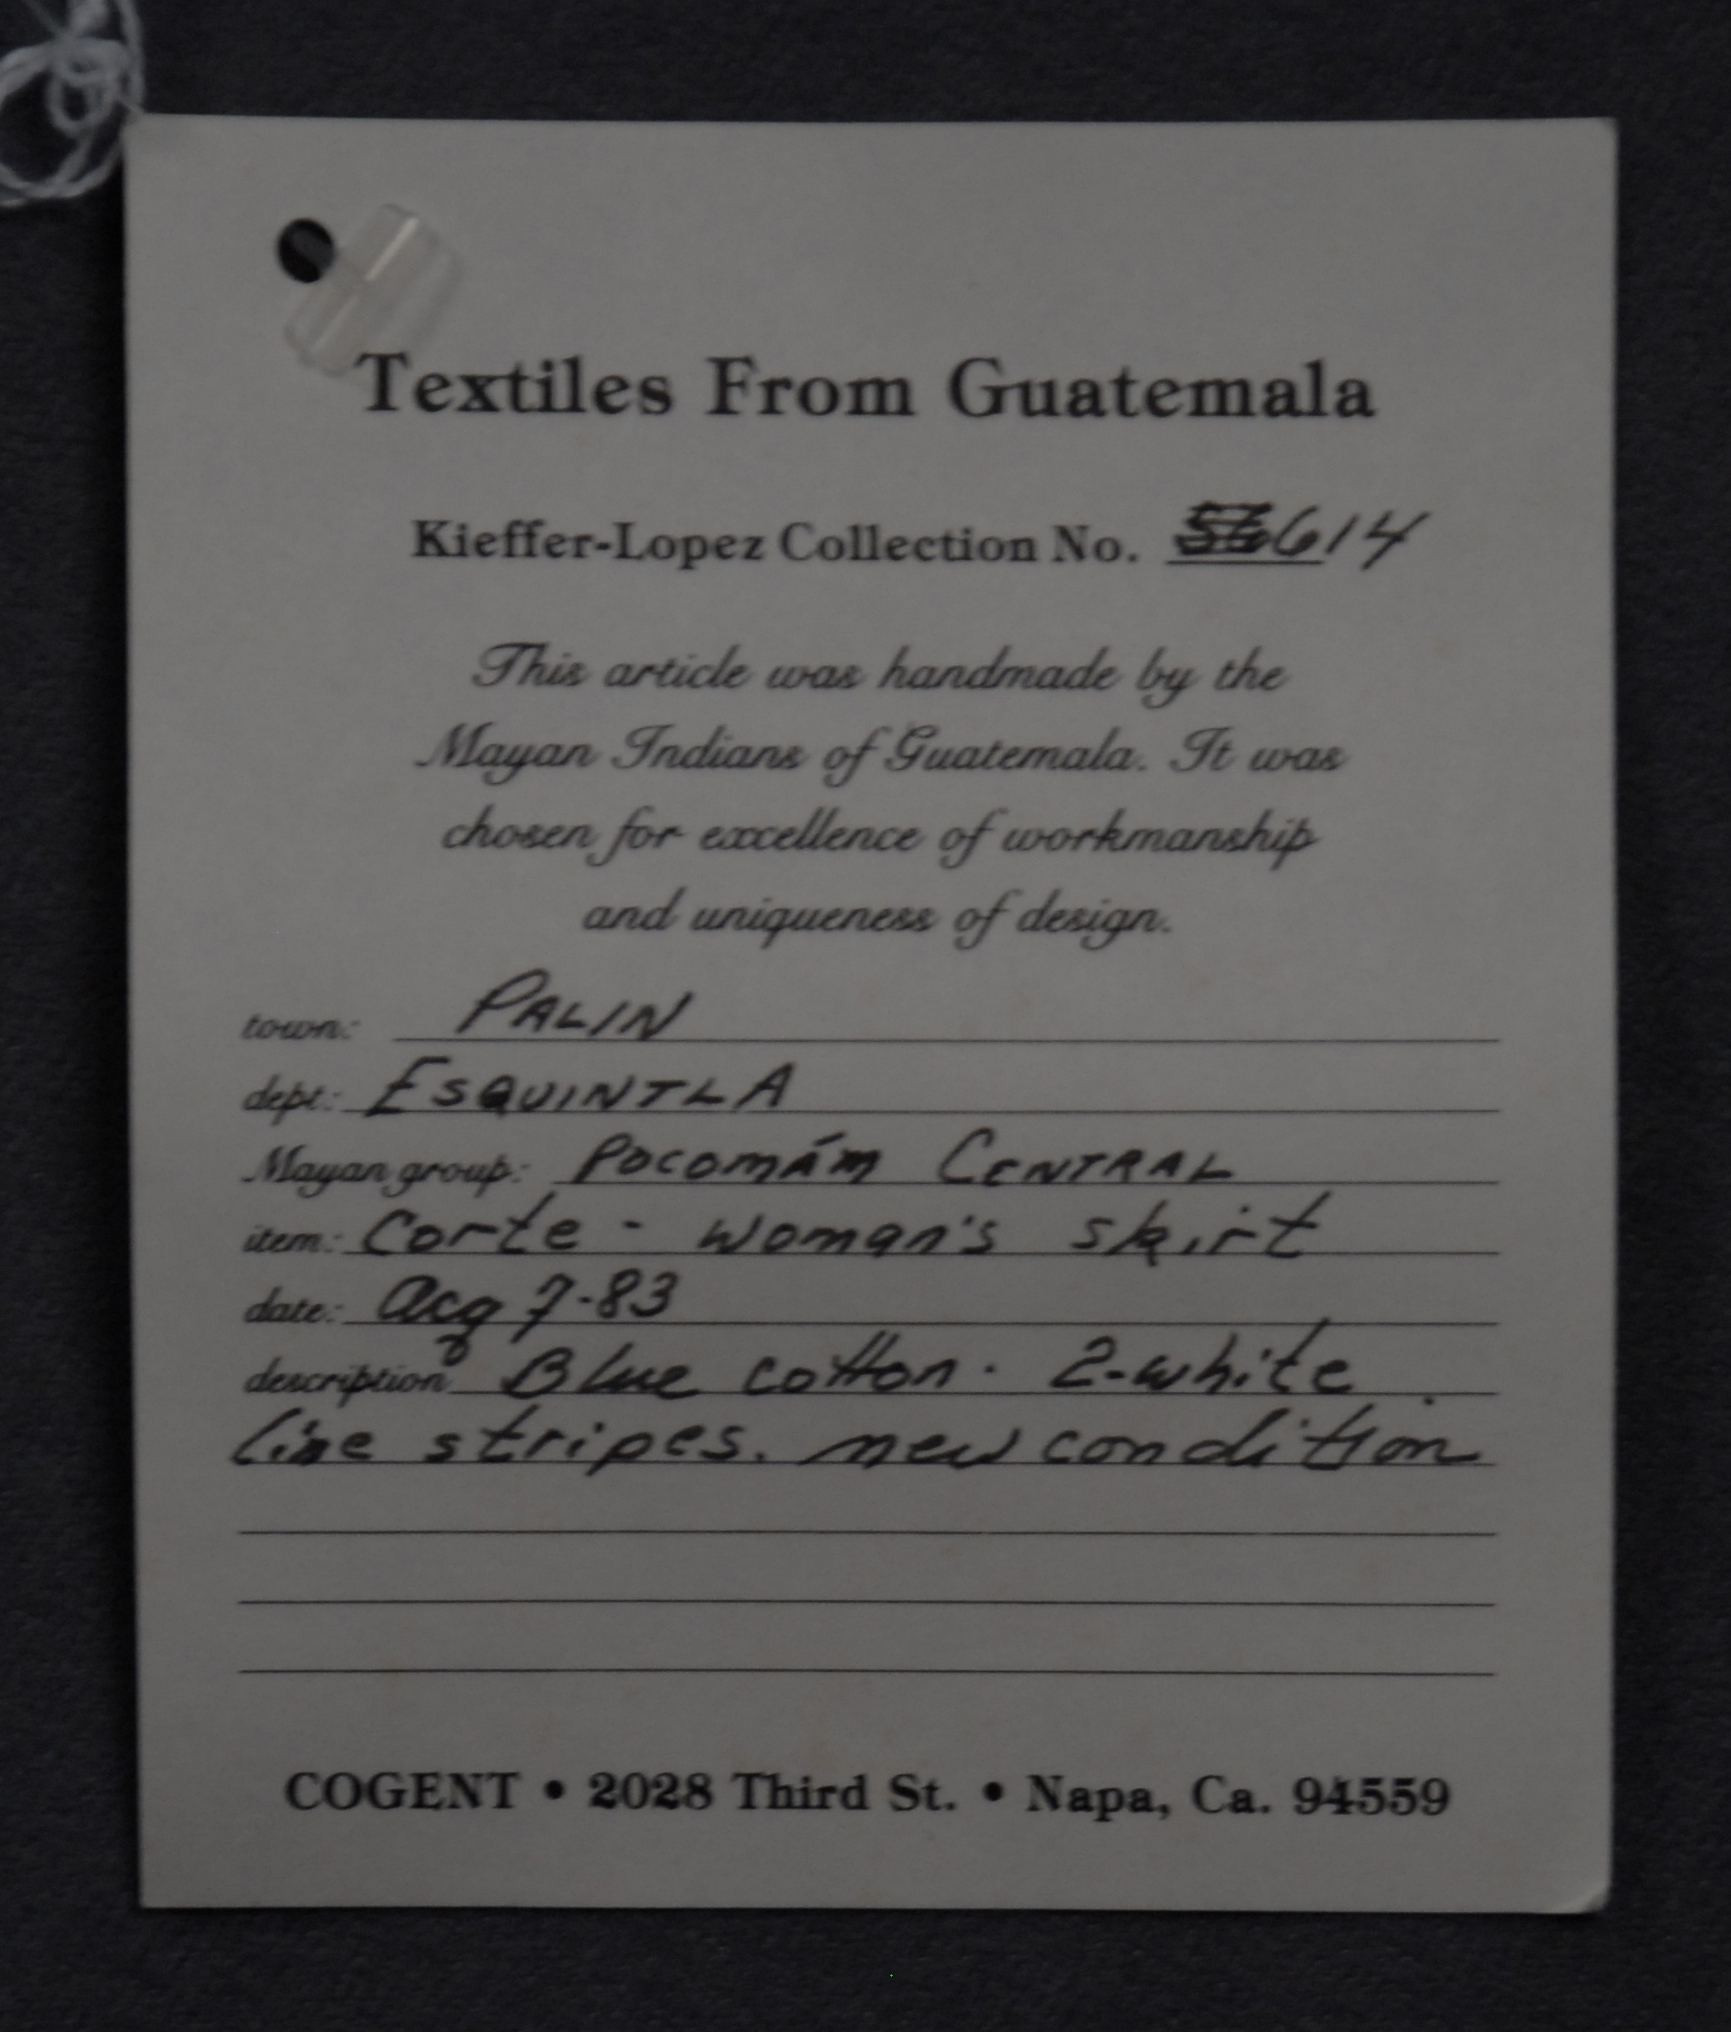 Textiles From Guatemala
Kieffer-Lopez Collection No. 614
This article was handmade by the
Mayan Indians of Guatemala. It was
chosen for excellence of workmanship
and uniqueness of design.
town: PALIN
dept: ESQUINTLA
Mayan group: POCOMÁM CENTRAL
item: Corte - woman's skirt
date: acq 7-83
description Blue cotton. 2-white
line stripes. new condition
COGENT • 2028 Third St. • Napa, Ca. 94559